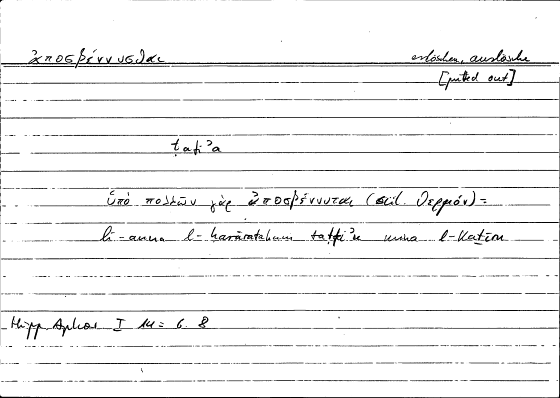 ἀποσβέννυσθαι erlöschen, auslöschen
[putted out]
ṭafiʾa
ὑπὸ πολλῶν γὰρ ἀποσβέννυται (scil. θερμόν) =
li-anna l-ḥarārata tatfaʾu mina l-kaṯīri
Hipp. Aphor I 14 = 6. 8